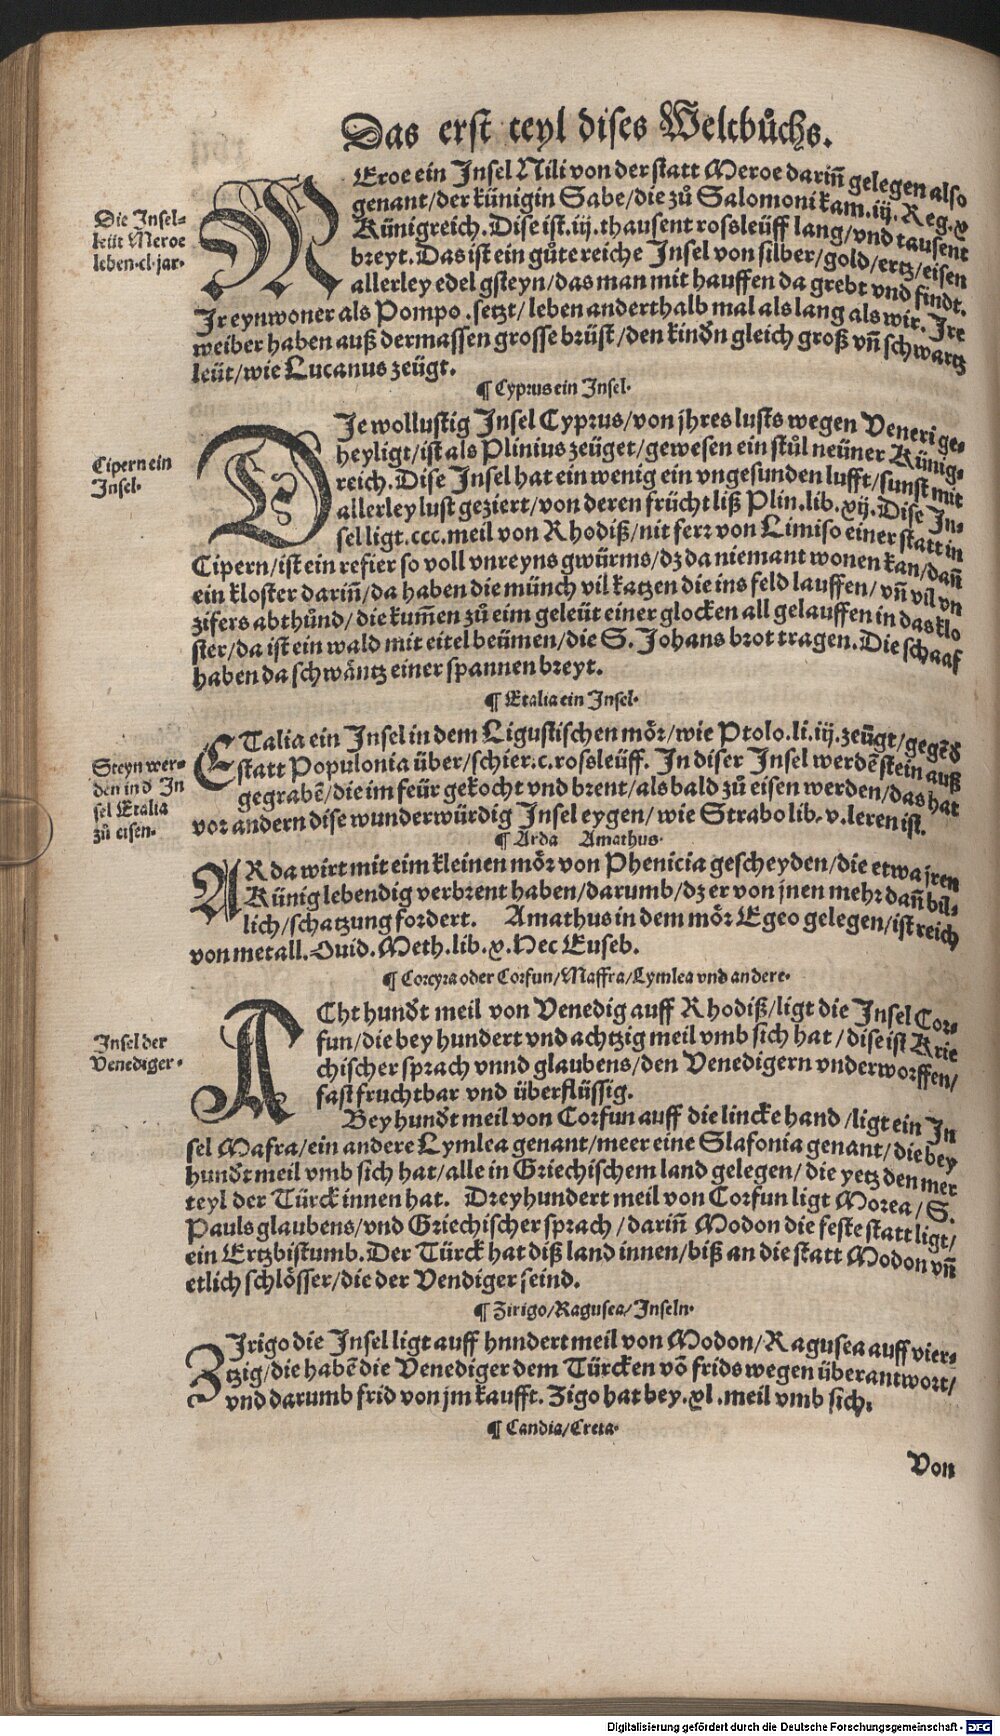 Das erst teyl dises Weltbůchs.
MEroe ein Insel Nili von der statt Meroe dariñ gelegen also
genant/der künigin Sabe/die zů Salomoni kam.iij.Reg.x
Künigreich.Dise ist.iij.thausent rossleüff lang/vnd tausent
breyt.Das ist ein gůte reiche Insel von silber/gold/ertz/eisen
allerley edel gsteyn/das man mit hauffen da grebt vnd findt.
Ir eynwoner als Pompo.setzt/leben anderthalb mal als lang als wir. Ire
weiber haben auß dermassen grosse brüst/den kindñ gleich groß vñ schwartz
leüt/wie Lucanus zeügt.
Die Insel-
leüt Meroe
leben.cl.jar.
¶ Cyprus ein Insel.
DIe wollustig Insel Cyprus/von jhres lusts wegen Veneri ge-
heyligt/ist als Plinius zeüget/gewesen ein stůl neüner Künig-
reich.Dise Insel hat ein wenig ein vngesunden lufft/sunst mit
allerley lust geziert/von deren frücht liß Plin.lib.xij.Dise In-
sel ligt.ccc.meil von Rhodiß/nit ferr von Limiso einer statt in
Cipern/ist ein refier so voll vnreyns gwürms/dz da niemant wonen kan/dañ
ein kloster dariñ/da haben die münch vil katzen die ins feld lauffen/vñ vil vn
zifers abthůnd/die kum̃en zů eim geleüt einer glocken all gelauffen in das klo
ster/da ist ein wald mit eitel beümen/die S. Johans brot tragen.Die schaaf
haben da schwäntz einer spannen breyt.
Cipern ein
Insel.
¶ Etalia ein Insel.
ETalia ein Insel in dem Ligustischen mör/wie Ptolo.li.iij.zeügt/gegẽd
statt Populonia über/schier.c.rossleüff. In diser Insel werdẽ stein auß
gegrabẽ/die im feür gekocht vnd brent/als bald zů eisen werden/das hat
vor andern dise wunderwürdig Insel eygen/wie Strabo lib.v.leren ist.
Steyn wer-
den in d In
sel Etalia
zů eisen.
¶ Arda Amathus.
ARda wirt mit eim kleinen mör von Phenicia gescheyden/die etwa jren
Künig lebendig verbrent haben/darumb/dz er von jnen mehr dañ bil-
lich/schatzung fordert. Amathus in dem mör Egeo gelegen/ist reich
von metall.Ouid.Meth.lib.x.Hec Euseb.
¶ Corcyra oder Corfun/Maffra/Lymlea vnd andere.
ACht hundt meil von Venedig auff Rhodiß/ligt die Insel Cor-
fun/die bey hundert vnd achtzig meil vmb sich hat/dise ist Krie
chischer sprach vnnd glaubens/den Venedigern vnderworffen/
fast fruchtbar vnd überflüssig.
Insel der
Venediger.
Bey hundt meil von Corfun auff die lincke hand/ligt ein In
sel Mafra/ein andere Lymlea genant/meer eine Slafonia genant/die bey
hundt meil vmb sich hat/alle in Griechischem land gelegen/die yetz den mer
teyl der Türck innen hat. Dreyhundert meil von Corfun ligt Morea/S.
Pauls glaubens/vnd Griechischer sprach/dariñ Modon die feste statt ligt/
ein Ertzbistumb.Der Türck hat diß land innen/biß an die statt Modon vñ
etlich schlösser/die der Vendiger seind.
¶ Zirigo/Ragusea/Inseln.
ZIrigo die Insel ligt auff hnndert meil von Modon/Ragusea auff vier-
tzig/die habẽ die Venediger dem Türcken võ frids wegen überantwort/
vnd darumb frid von jm kaufft. Zigo hat bey.xl.meil vmb sich.
¶ Candia/Creta.
Von
Digitalisierung gefördert durch die Deutsche Forschungsgemeinschaft - DFG